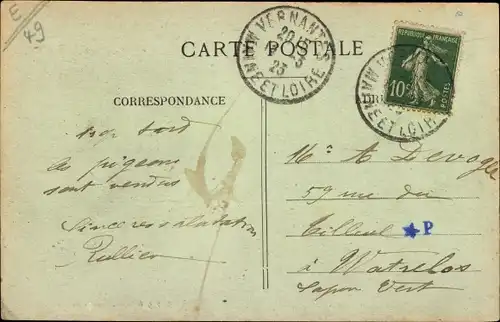 E
49
CARTE POSTALE
VERNANTES
20
3
23
MAINE ET LOIRE
REPUBLIQUE FRANÇAISE
10c
POSTES
MAINE ET LOIRE
CORRESPONDANCE
trop tard
les pigeons
sont vendus
Sinceres salutation
Rullier
Mr A Devogle
59 rue du
Tilleul
P
à Watrelos
Sapon Vert